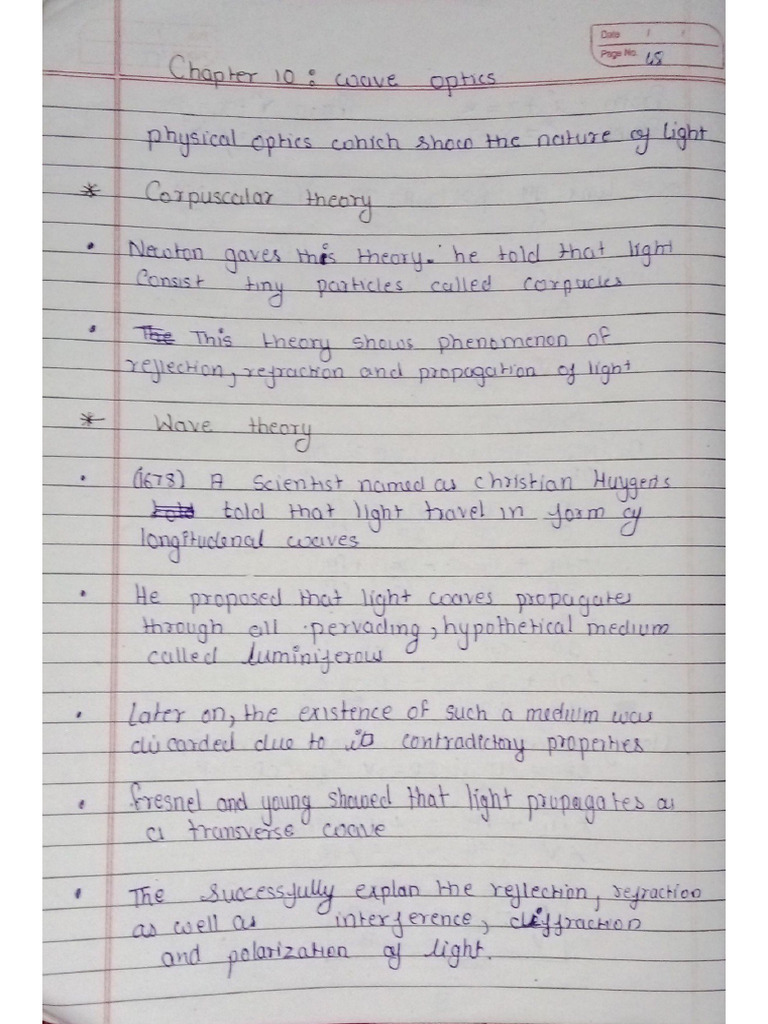 Date / /
Page No. 68
Chapter 10 : wave optics
physical optics which show the nature of light
* Corpuscalar theory
• Newton gaves this theory. he told that light
Consist tiny particles called corpucles
• The This theory shows phenomenon of
reflection, refraction and propagation of light
* Wave theory
• (1678) A Scientist named as christian Huygens
told that light travel in form of
longitudenal waves
• He proposed that light waves propagates
through all pervading, hypothetical medium
called luminiferous
• Later on, the existence of such a medium was
discarded due to its contradictory properties
• fresnel and young showed that light propagates as
a transverse wave
• The successfully explan the reflection, refraction
as well as interference, diffraction
and polarization of light.